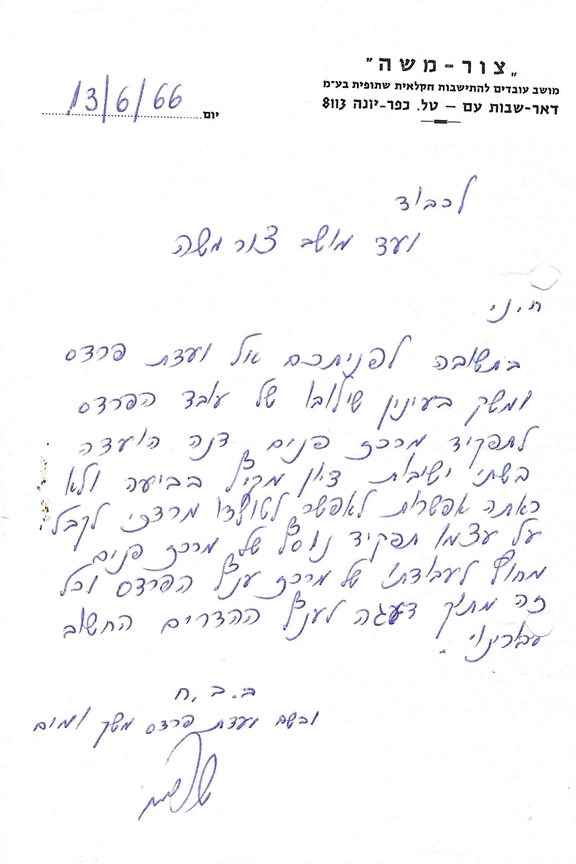 „צור-משה"
מושב עובדים להתישבות חקלאית שתופית בע״מ
דאר-שבות עם — טל. כפר-יונה 8113
יום 13/6/66
לכבוד
ועד מושב צור משה
ח.נ.
בתשובה לפניתכם אל ועדת פרדס
ומשק בעינין שילובו של עובד הפרדס
לתפקיד מרכז פנים דנה הועדה
בשתי ישיבות דיון מקיף בביעה ולא
ראתה אפשרות לאפשר מרכזי לקבל
על עצמו תפקיד נוסף של מרכז פנים
מחוץ לעבודתו של מרכז ענף הפרדס וכל
זה מתוך דעגה לענף ההדרים החשוב
עבורינו.
ב.ב.ח
ובשם ועדת פרדס משק ומים